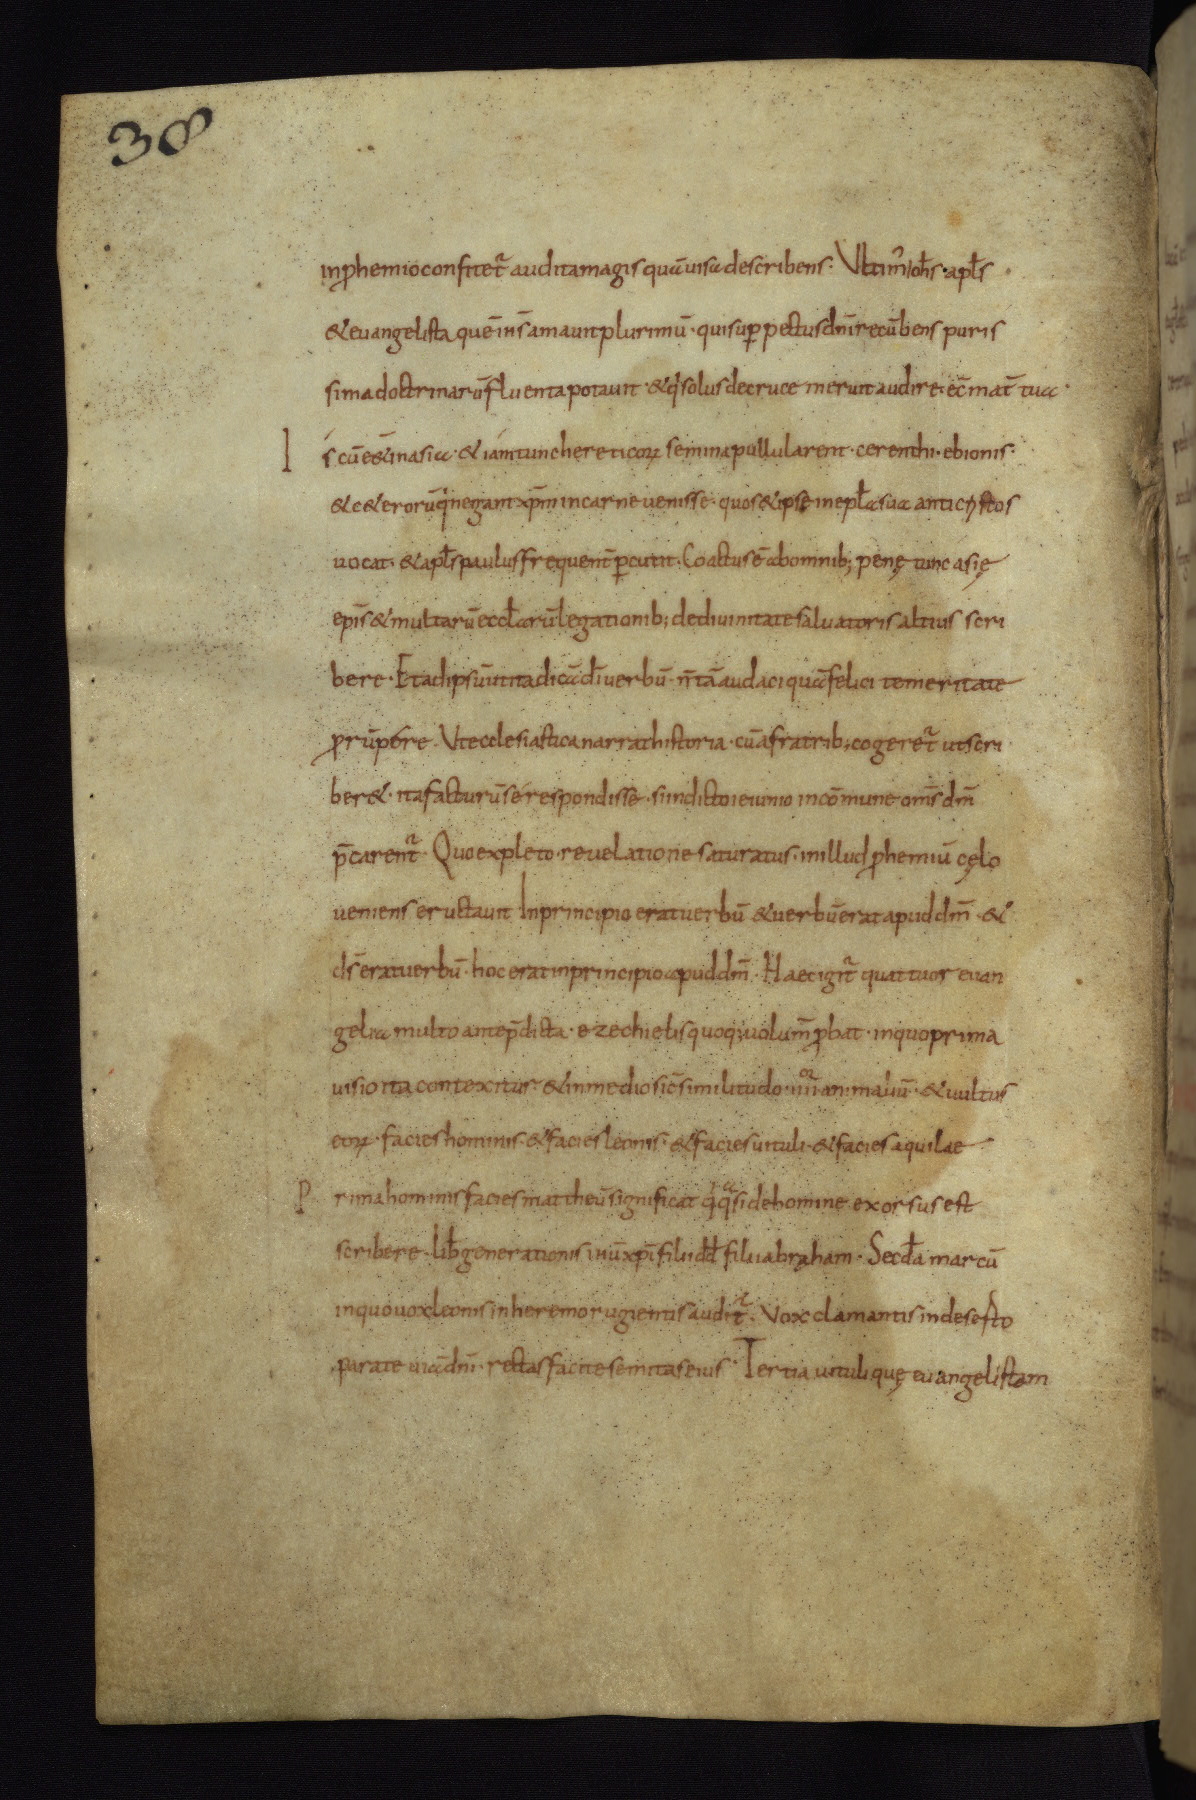 38
inp̄hemio confitet᷑ audita magis quā uisa describens. Vltim᷑ ioh̄s apl̄s
& euangelista quē ih̄s amauit plurimū. qui sup̄ pectus dn̄i recūbens puris
sima doctrinarū fluenta potauit. & q̄ solus de cruce meruit audire. ec̄ mat̄ tua.
I s cū e&̄ in asia. & iam tunc hereticoꝝ semina pullularent. cerenthi. ebionis.
& c&erorū q̄ negant xp̄m in carne uenisse. quos & ipse in epl̄a sua antichr̄istos
uocat. & apl̄s paulus frequent̄ p̄cutit. Coactus ē ab omnib; penę tunc asię
epīs & multarū eccl̄arū legationib; de diuinitate saluatoris altius scri
bere. Et ad ipsū ut ita dicā dī uerbū. n̄ tā audaci quā felici temeritate
p̄rūpere. Vt ecclesiastica narrat historia. cū a fratrib; coger&̄ ut scri
ber&. ita facturū se respondisse. si indicto ieiunio in cōmune om̄s dm̄
p̄carent᷑. Quo expleto. reuelatione saturatus. in illud p̄hemiū cęlo
ueniens eructauit In principio erat uerbū & uerbū erat apud dm̄. &
ds̄ erat uerbū. hoc erat in principio apud dm̄. Haec igit᷑ quattuor euan
gelia multo ante p̄dicta. ezechielis quoq; uolum̄ p̄bat. in quo prima
uisio ita contexitur & in medio sic̄ similitudo. iiii᷑ or animaliū. & uultus
eoꝝ. facies hominis. & facies leonis. & facies uituli. & facies aquilae
P rima hominis facies mattheū significat q̄ q̄si de homine exorsus est
scribere. lib̄ generationis ih̄u xp̄i filii dd̄ filii abrąham. Secd̄a marcū
in quo uox leonis in heremo rugientis audit᷑. Vox clamantis in deserto
parate uiā dn̄i. rectas facite semitas eius. Tertia uituli quę euangelistam